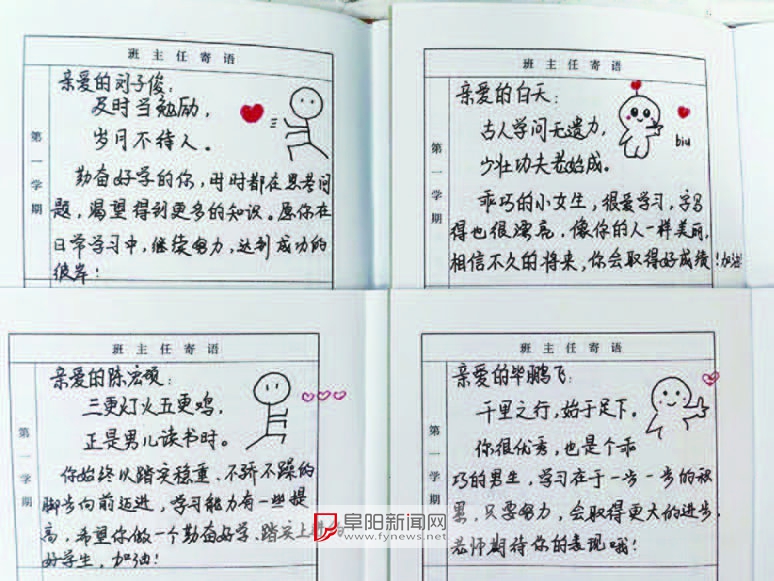 班主任寄语
第一学期
亲爱的刘子俊：
及时当勉励，
岁月不待人。
勤奋好学的你，时时都在思考问
题，渴望得到更多的知识。愿你在
日常学习中，继续努力，达到成功的
彼岸！
班主任寄语
第一学期
亲爱的白天：
古人学问无遗力，
少壮功夫老始成。
biu
乖巧的小女生，很爱学习，字写
得也很漂亮，像你的人一样美丽，
相信不久的将来，你会取得好成绩！加油
班主任寄语
第一学期
亲爱的陈宏硕：
三更灯火五更鸡，
正是男儿读书时。
你始终以踏实稳重、不骄不躁的
脚步向前迈进，学习能力有一些提
高，希望你做一个勤奋好学、踏实上进的
好学生，加油！
班主任寄语
第一学期
亲爱的毕鹏飞：
千里之行，始于足下。
你很优秀，也是个乖
巧的男生，学习在于一步一步的积
累，只要努力，会取得更大的进步，
老师期待你的表现哦！
阜阳新闻网
www.fynews.net